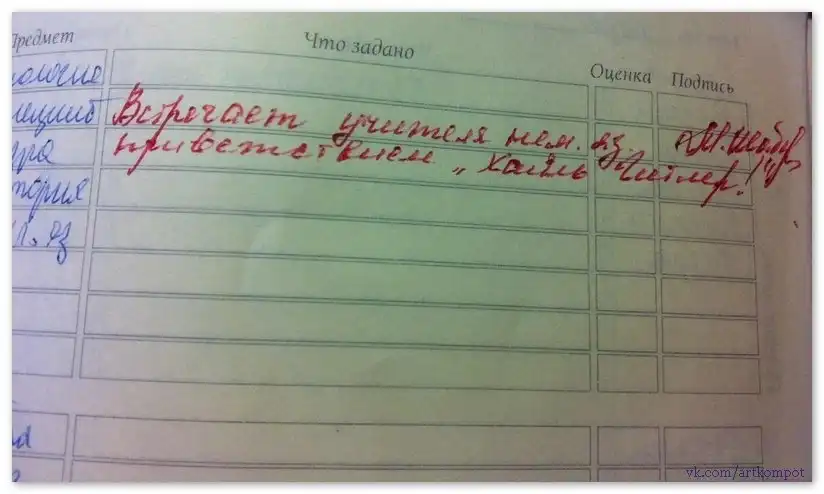 Предмет
Что задано
Оценка
Подпись
Встречает учителя нем. яз.
приветствием „Хайль Гитлер!"
тория
яз
vk.com/artkompot